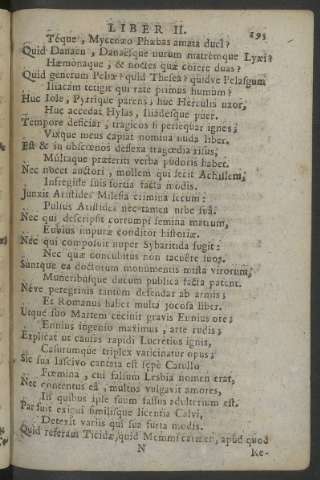 LIBER II. 193
Téque, Mycenæo Phœbas amata duci?
Quid Danaën, Danaësque nurum matremque Lyæi?
Hæmonaque, & noctes quæ coiere duas?
Quid generum Peliæ? quid Thesea? quidve Pelasgum
Iliacam tetigit qui rate primus humum?
Huc Iole, Pyrrique parens, huc Herculis uxor,
Huc accedat Hylas, Iliadesque puer.
Tempore deficiar, tragicos si persequar ignes;
Vixque meus capiat nomina nuda liber.
Est & in obscœnos deflexa tragœdia risus,
Multaque præteriti verba pudoris habet.
Nec nocet auctori, mollem qui fecit Achillem,
Infregisse suis fortia facta modis.
Junxit Aristides Milesia crimina secum:
Pulsus Aristides nec tamen urbe suâ.
Nec qui descripsit corrumpi semina matrum,
Eubius impuræ conditor historiæ.
Nec qui composuit nuper Sybaritida fugit:
Nec quæ concubitus non tacuêre suos.
Suntque ea doctorum monumentis mista virorum,
Muneribusque ducum publica facta patent.
Néve peregrinis tantùm defendar ab armis;
Et Romanus habet multa jocosa liber.
Utque suo Martem cecinit gravis Ennius ore;
Ennius ingenio maximus, arte rudis;
Explicat ut causas rapidi Lucretius ignis,
Casurumque triplex vaticinatur opus;
Sic sua lascivo cantata est sępè Catullo
Fœmina, cui falsum Lesbia nomen erat,
Nec contentus eâ, multos vulgavit amores,
In quibus ipse suum fassus adulterum est.
Par fuit exigui similisque licentia Calvi,
Detexit variis qui sua furta modis.
Quid referam Ticidæ, quid Memmi carmen, apud quod
N Re-